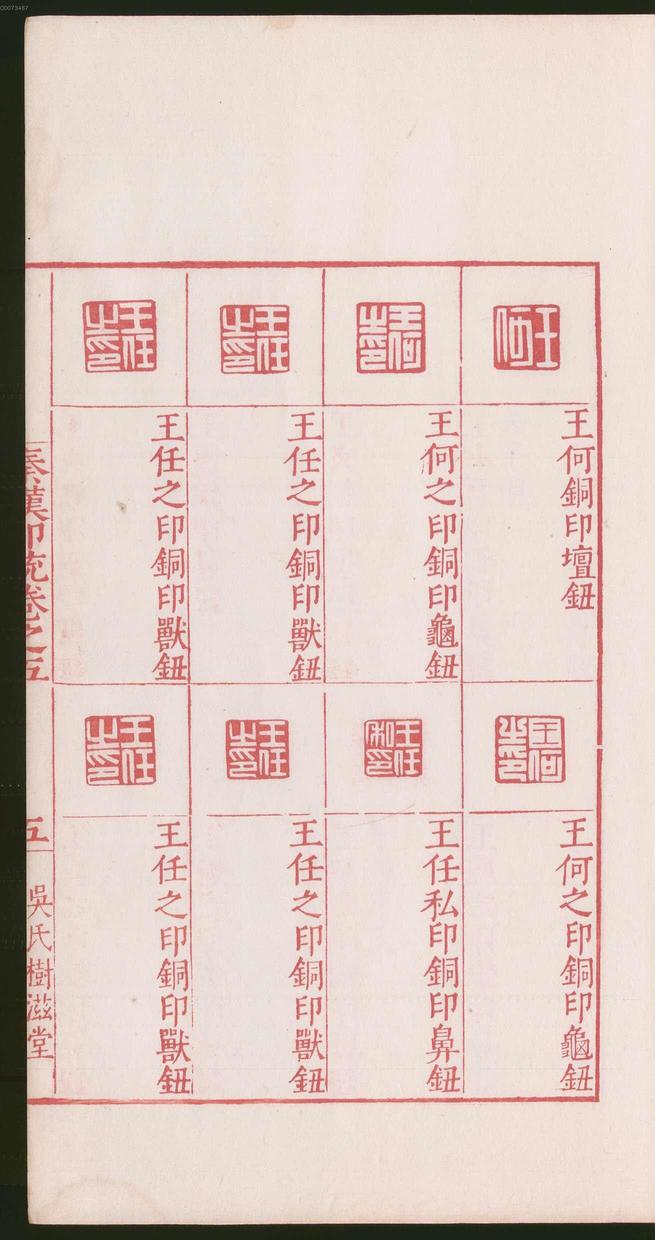 00073467
王何
王何銅印壇鈕
王何之印
王何之印銅印龜鈕
王任之印
王任之印銅印獸鈕
王任之印
王任之印銅印獸鈕
王何之印
王何之印銅印龜鈕
王任私印
王任私印銅印鼻鈕
王任之印
王任之印銅印獸鈕
王任之印
王任之印銅印獸鈕
秦漢印統卷之五
五
吳氏樹滋堂